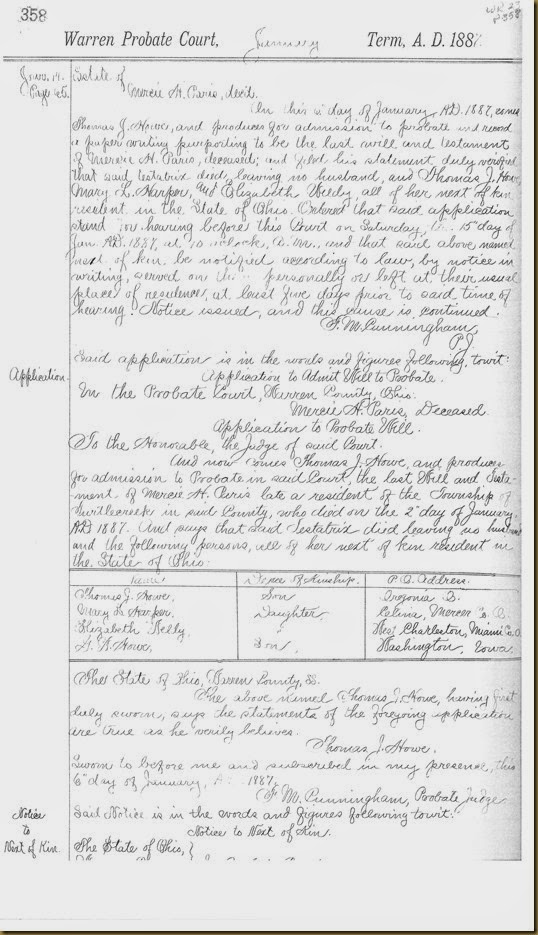 358
Warren Probate Court, January Term, A. D. 1887.
Estate of
Mercie H. Paris, dec'd.
Page 65.
On this 6" day of January, A.D. 1887, comes
Thomas J. Howe, and produces for admission to probate and record
a paper writing purporting to be the last will and testament
of Mercie H. Paris, deceased; and filed his statement duly verified
that said testatrix died, leaving no husband, and Thomas J. Howe
Mary L. Harper, and Elizabeth Kelly, all of her next of kin
resident in the State of Ohio. Ordered that said application
stand for hearing before this Court on Saturday, 15 day of
Jan. A.D. 1887, at 10 o'clock, A.M., and that said above named
next of kin be notified according to law, by notice in
writing, served on personally or left at their usual
place of residence, at least five days prior to said time of
hearing. Notice issued, and this cause is continued.
F. M. Cunningham,
P.J.
Said application is in the words and figures following, towit:
Application.
Application to Admit Will to Probate.
In the Probate Court, Warren County, Ohio.
Mercie H. Paris, Deceased.
Application to Probate Will.
To the Honorable, the Judge of said Court.
And now comes Thomas J. Howe, and produces
for admission to Probate in said Court, the last Will and Testa-
ment of Mercie H. Paris late a resident of the Township of
Turtlecreek in said County, who died on the 2" day of January,
AD 1887. And says that said Testatrix died leaving no husband
and the following persons, all of her next of kin resident in
the State of Ohio:
Name Degree of Kinship. P.O. Address.
Thomas J. Howe, Son Oregonia O.
Mary L. Harper, Daughter Celina, Mercer Co. O.
Elizabeth Kelly, " West Charleston, Miami Co. O.
Howe, Son, Washington, Iowa.
The State of Ohio, Warren County, SS.
The above named Thomas J. Howe, having first
duly sworn, says the statements of the foregoing application
are true as he verily believes.
Thomas J. Howe.
Sworn to before me and subscribed in my presence, this
6" day of January, A. 1887.
F. M. Cunningham, Probate Judge
Notice
to
Next of Kin.
Said Notice is in the words and figures following towit:
Notice to Next of Kin.
The State of Ohio, }